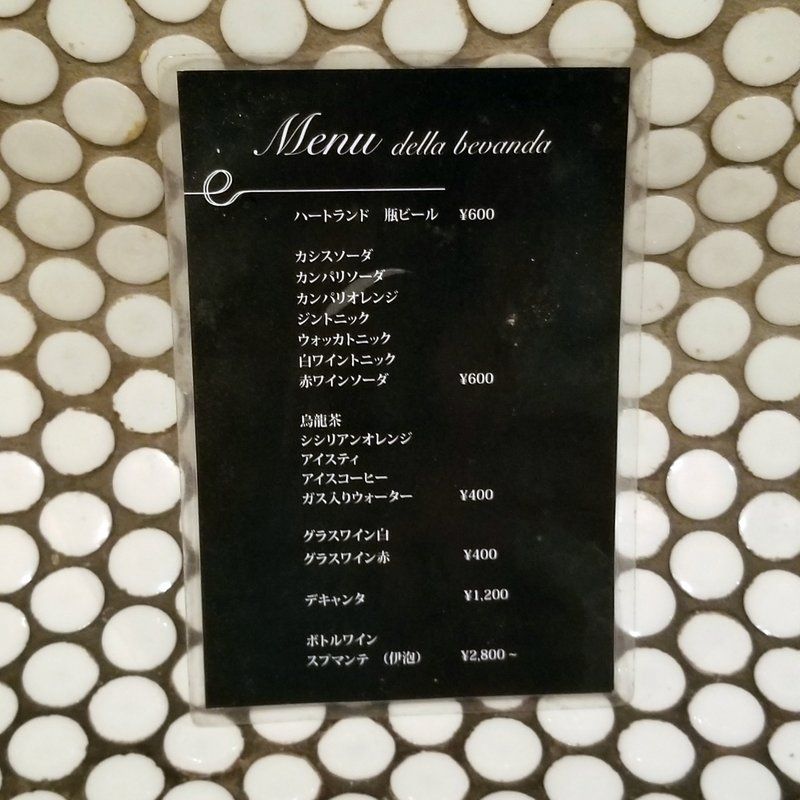 Menu della bevanda
ハートランド 瓶ビール ¥600
カシスソーダ
カンパリソーダ
カンパリオレンジ
ジントニック
ウォッカトニック
白ワイントニック
赤ワインソーダ ¥600
烏龍茶
シシリアンオレンジ
アイスティ
アイスコーヒー
ガス入りウォーター ¥400
グラスワイン白
グラスワイン赤 ¥400
デキャンタ ¥1,200
ボトルワイン
スプマンテ (伊泡) ¥2,800~